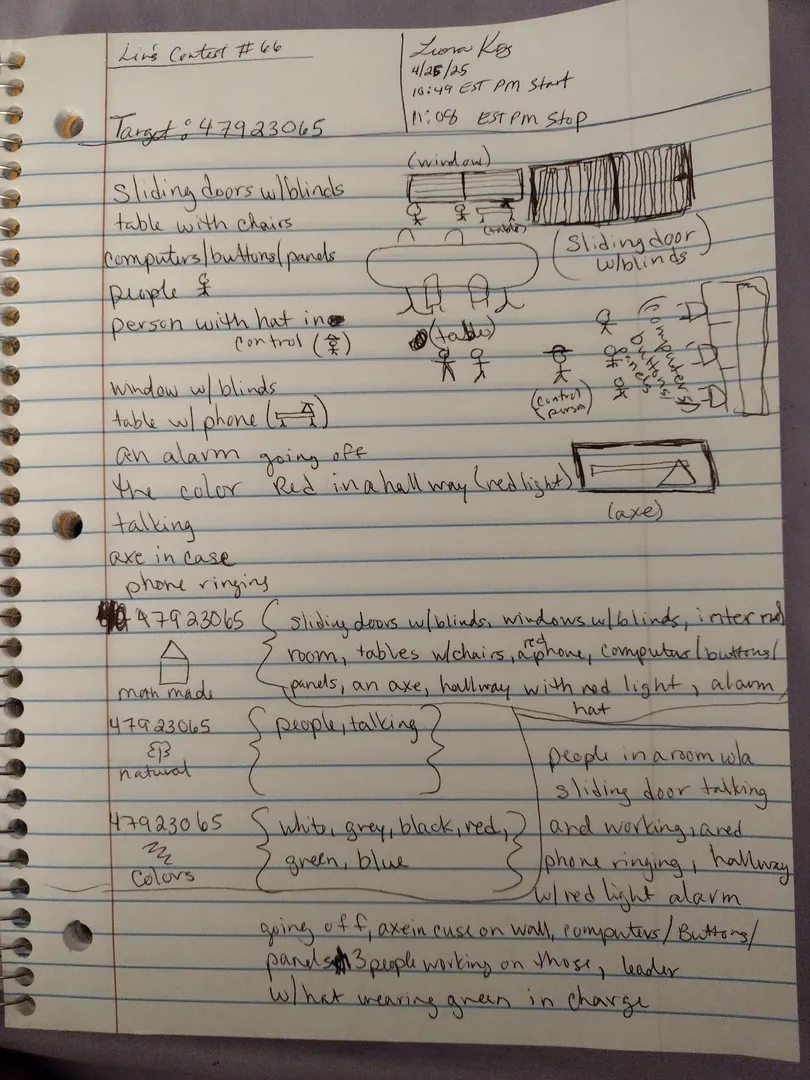 Lin's Contest #66
4/25/25
10:49 EST PM Start
11:08 EST PM Stop
Target: 47923065
(window)
Sliding doors w/blinds
table with chairs
(table)
(Sliding door
w/blinds)
computers/buttons/panels
people
person with hat in
control
(table)
(computers
buttons/
panels)
(control
person)
window w/ blinds
table w/ phone
an alarm going off
the color Red in a hallway (red light)
(axe)
talking
axe in case
phone ringing
47923065
man made
sliding doors w/blinds, windows w/blinds, internal
room, tables w/chairs, a red phone, computers/buttons/
panels, an axe, hallway with red light, alarm,
hat
47923065
natural
people, talking
47923065
Colors
white, grey, black, red,
green, blue
people in a room w/a
sliding door talking
and working, a red
phone ringing, hallway
w/red light alarm
going off, axe in case on wall, computers/Buttons/
panels 3 people working on those, leader
w/hat wearing green in charge